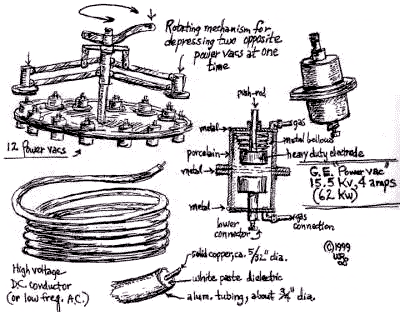 Rotating mechanism for
depressing two opposite
power vacs at one
time
12 Power vacs
push-rod
gas
metal
metal bellows
porcelain
heavy duty electrode
metal
G.E. "Power vac"
15.5 Kv, 4 amps
(62 Kw)
metal
lower
connector
gas
connection
High voltage
D.C. conductor
(or low freq. A.C.)
solid copper, ca. 5/32" dia.
white paste dielectric
alum. tubing, about 3/4" dia.
©1999